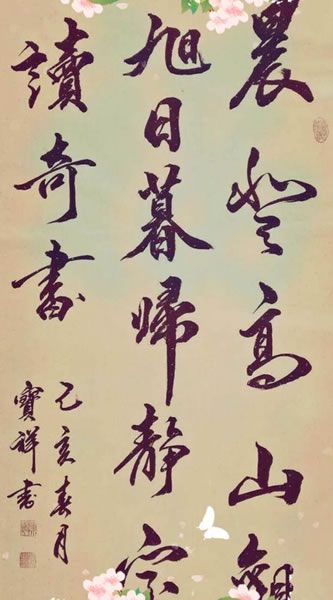 晨登高山觀
旭日暮歸靜
讀奇書
己亥春月
寶祥書